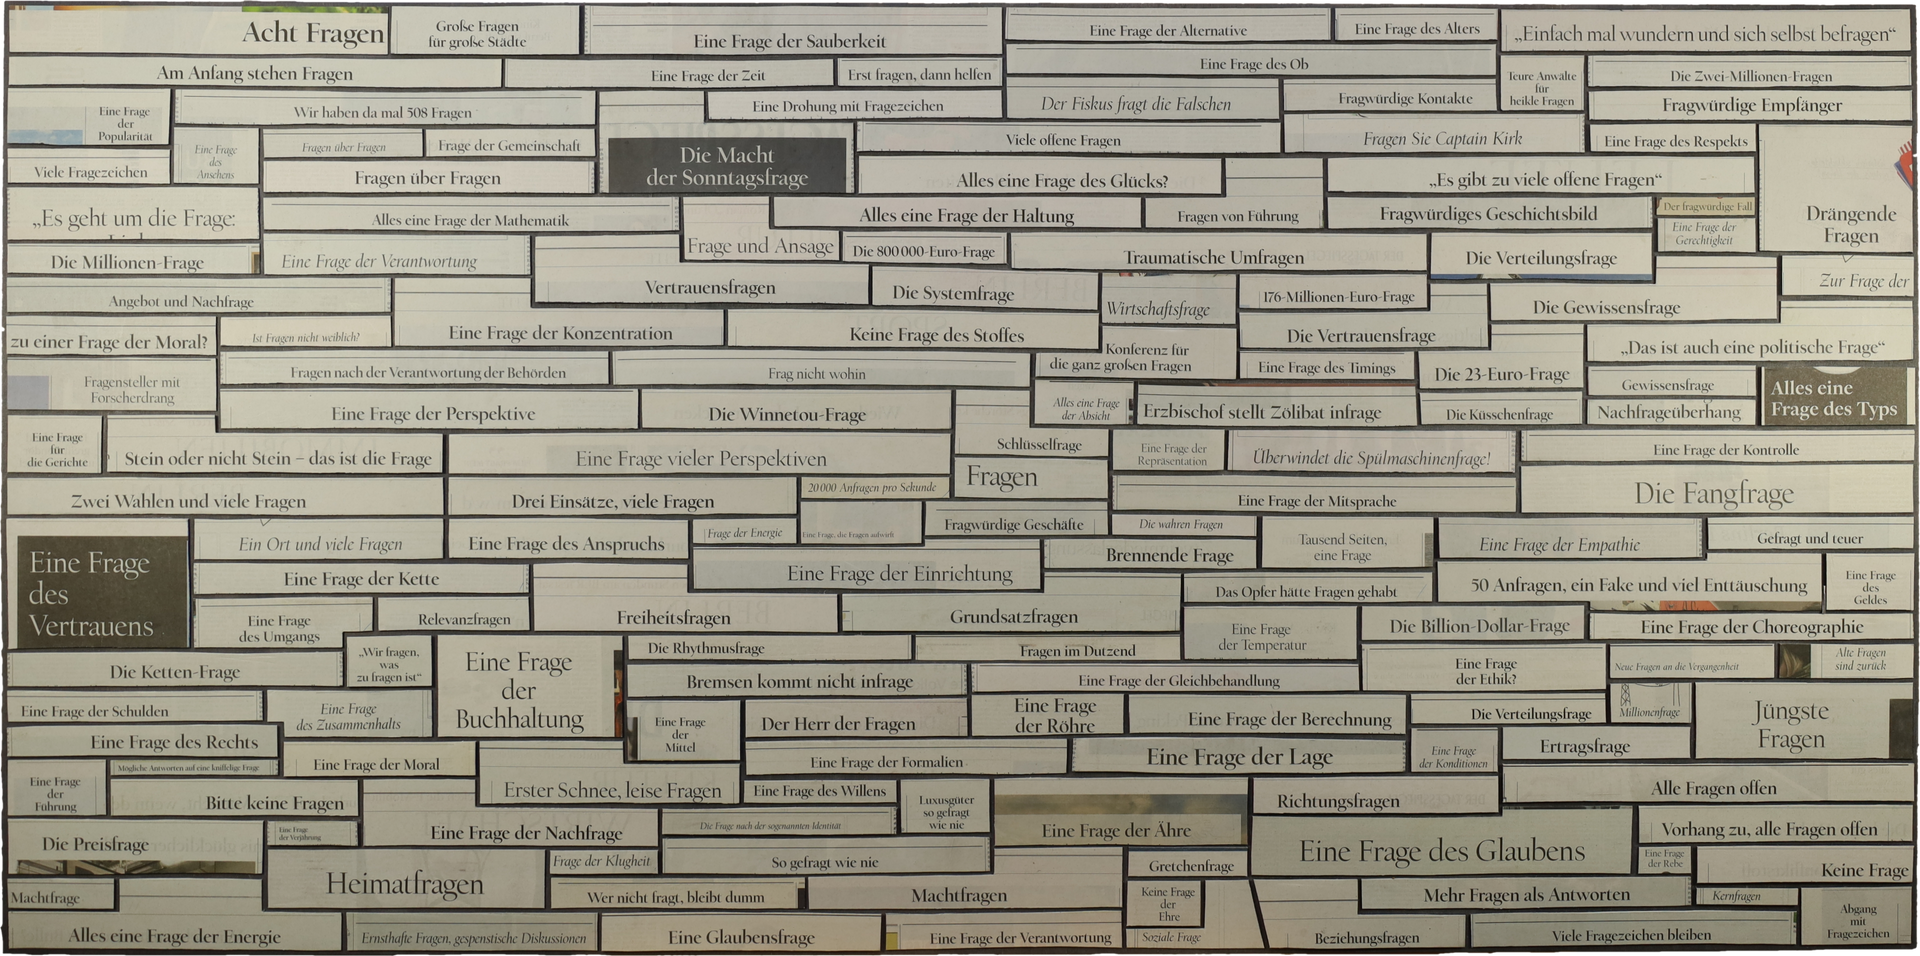 Acht Fragen
Große Fragen
für große Städte
Eine Frage der Sauberkeit
Eine Frage der Alternative
Eine Frage des Alters
„Einfach mal wundern und sich selbst befragen“
Am Anfang stehen Fragen
Eine Frage der Zeit
Erst fragen, dann helfen
Eine Frage des Ob
Teure Anwälte
für
heikle Fragen
Die Zwei-Millionen-Fragen
Eine Frage
der
Popularität
Wir haben da mal 508 Fragen
Eine Drohung mit Fragezeichen
Der Fiskus fragt die Falschen
Fragwürdige Kontakte
Fragwürdige Empfänger
Viele Fragezeichen
Eine Frage
des
Ansehens
Fragen über Fragen
Frage der Gemeinschaft
Die Macht
der Sonntagsfrage
Viele offene Fragen
Fragen Sie Captain Kirk
Eine Frage des Respekts
Fragen über Fragen
Alles eine Frage des Glücks?
„Es gibt zu viele offene Fragen“
Drängende
Fragen
„Es geht um die Frage:
Alles eine Frage der Mathematik
Frage und Ansage
Alles eine Frage der Haltung
Fragen von Führung
Fragwürdiges Geschichtsbild
Der fragwürdige Fall
Eine Frage der
Gerechtigkeit
Die Millionen-Frage
Eine Frage der Verantwortung
Die 800 000-Euro-Frage
Traumatische Umfragen
Die Verteilungsfrage
Zur Frage der
Angebot und Nachfrage
Vertrauensfragen
Die Systemfrage
Wirtschaftsfrage
176-Millionen-Euro-Frage
Die Gewissensfrage
zu einer Frage der Moral?
Ist Fragen nicht weiblich?
Eine Frage der Konzentration
Keine Frage des Stoffes
Konferenz für
die ganz großen Fragen
Die Vertrauensfrage
„Das ist auch eine politische Frage“
Fragensteller mit
Forscherdrang
Fragen nach der Verantwortung der Behörden
Frag nicht wohin
Eine Frage des Timings
Die 23-Euro-Frage
Gewissensfrage
Alles eine
Frage des Typs
Eine Frage der Perspektive
Die Winnetou-Frage
Alles eine Frage
der Absicht
Erzbischof stellt Zölibat infrage
Die Küsschenfrage
Nachfrageüberhang
Eine Frage
für
die Gerichte
Stein oder nicht Stein – das ist die Frage
Eine Frage vieler Perspektiven
Schlüsselfrage
Eine Frage der
Repräsentation
Überwindet die Spülmaschinenfrage!
Eine Frage der Kontrolle
Zwei Wahlen und viele Fragen
Drei Einsätze, viele Fragen
20 000 Anfragen pro Sekunde
Fragen
Eine Frage der Mitsprache
Die Fangfrage
Eine Frage
des
Vertrauens
Ein Ort und viele Fragen
Eine Frage des Anspruchs
Frage der Energie
Eine Frage, die Fragen aufwirft
Fragwürdige Geschäfte
Die wahren Fragen
Tausend Seiten,
eine Frage
Eine Frage der Empathie
Gefragt und teuer
Eine Frage der Kette
Eine Frage der Einrichtung
Brennende Frage
Das Opfer hätte Fragen gehabt
50 Anfragen, ein Fake und viel Enttäuschung
Eine Frage
des
Geldes
Eine Frage
des Umgangs
Relevanzfragen
Freiheitsfragen
Grundsatzfragen
Eine Frage
der Temperatur
Die Billion-Dollar-Frage
Eine Frage der Choreographie
Die Ketten-Frage
„Wir fragen,
was
zu fragen ist“
Eine Frage
der
Buchhaltung
Die Rhythmusfrage
Fragen im Dutzend
Eine Frage
der Ethik?
Neue Fragen an die Vergangenheit
Alte Fragen
sind zurück
Bremsen kommt nicht infrage
Eine Frage der Gleichbehandlung
Eine Frage der Schulden
Eine Frage
des Zusammenhalts
Eine Frage
der
Mittel
Der Herr der Fragen
Eine Frage
der Röhre
Eine Frage der Berechnung
Die Verteilungsfrage
Millionenfrage
Jüngste
Fragen
Eine Frage des Rechts
Eine Frage der Moral
Eine Frage der Formalien
Eine Frage der Lage
Eine Frage
der Konditionen
Ertragsfrage
Eine Frage
der
Führung
Mögliche Antworten auf eine knifflige Frage
Bitte keine Fragen
Erster Schnee, leise Fragen
Eine Frage des Willens
Luxusgüter
so gefragt
wie nie
Richtungsfragen
Alle Fragen offen
Die Preisfrage
Eine Frage
der Verjährung
Eine Frage der Nachfrage
Die Frage nach der sogenannten Identität
Eine Frage der Ähre
Eine Frage des Glaubens
Vorhang zu, alle Fragen offen
Heimatfragen
Frage der Klugheit
So gefragt wie nie
Gretchenfrage
Eine Frage
der Rebe
Keine Frage
Machtfrage
Wer nicht fragt, bleibt dumm
Machtfragen
Keine Frage
der
Ehre
Mehr Fragen als Antworten
Kernfragen
Abgang
mit
Fragezeichen
Alles eine Frage der Energie
Ernsthafte Fragen, gespenstische Diskussionen
Eine Glaubensfrage
Eine Frage der Verantwortung
Soziale Frage
Beziehungsfragen
Viele Fragezeichen bleiben